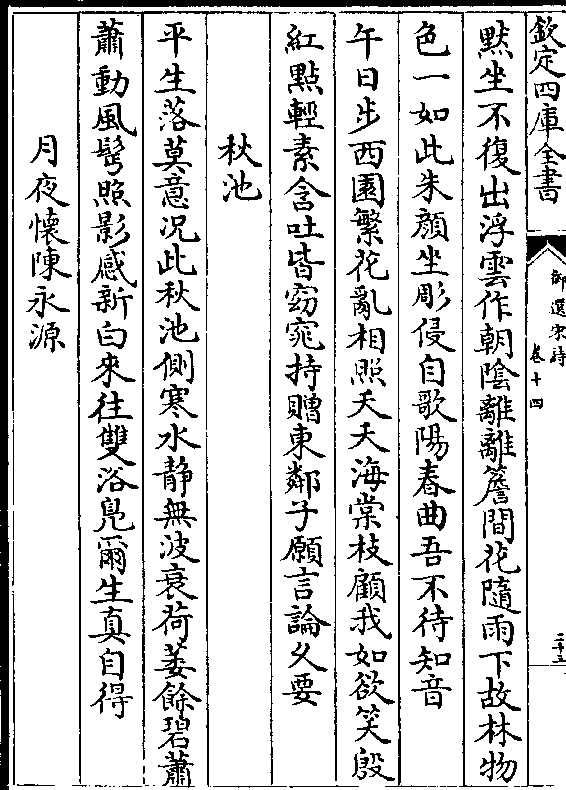 欽定四庫全書
御選宋詩
卷十四
二十五
默坐不復出浮雲作朝陰離離簷間花隨雨下故林物
色一如此朱顔坐彫侵自歌陽春曲吾不待知音
午日步西園繁花亂相照夭夭海棠枝顧我如欲笑殷
紅點輕素含吐皆窈窕持贈東鄰子願言論久要
秋池
平生落莫意况此秋池側寒水静無波衰荷萎餘碧蕭
蕭動風髩照影感新白來往雙浴鳬爾生真自得
月夜懐陳永源